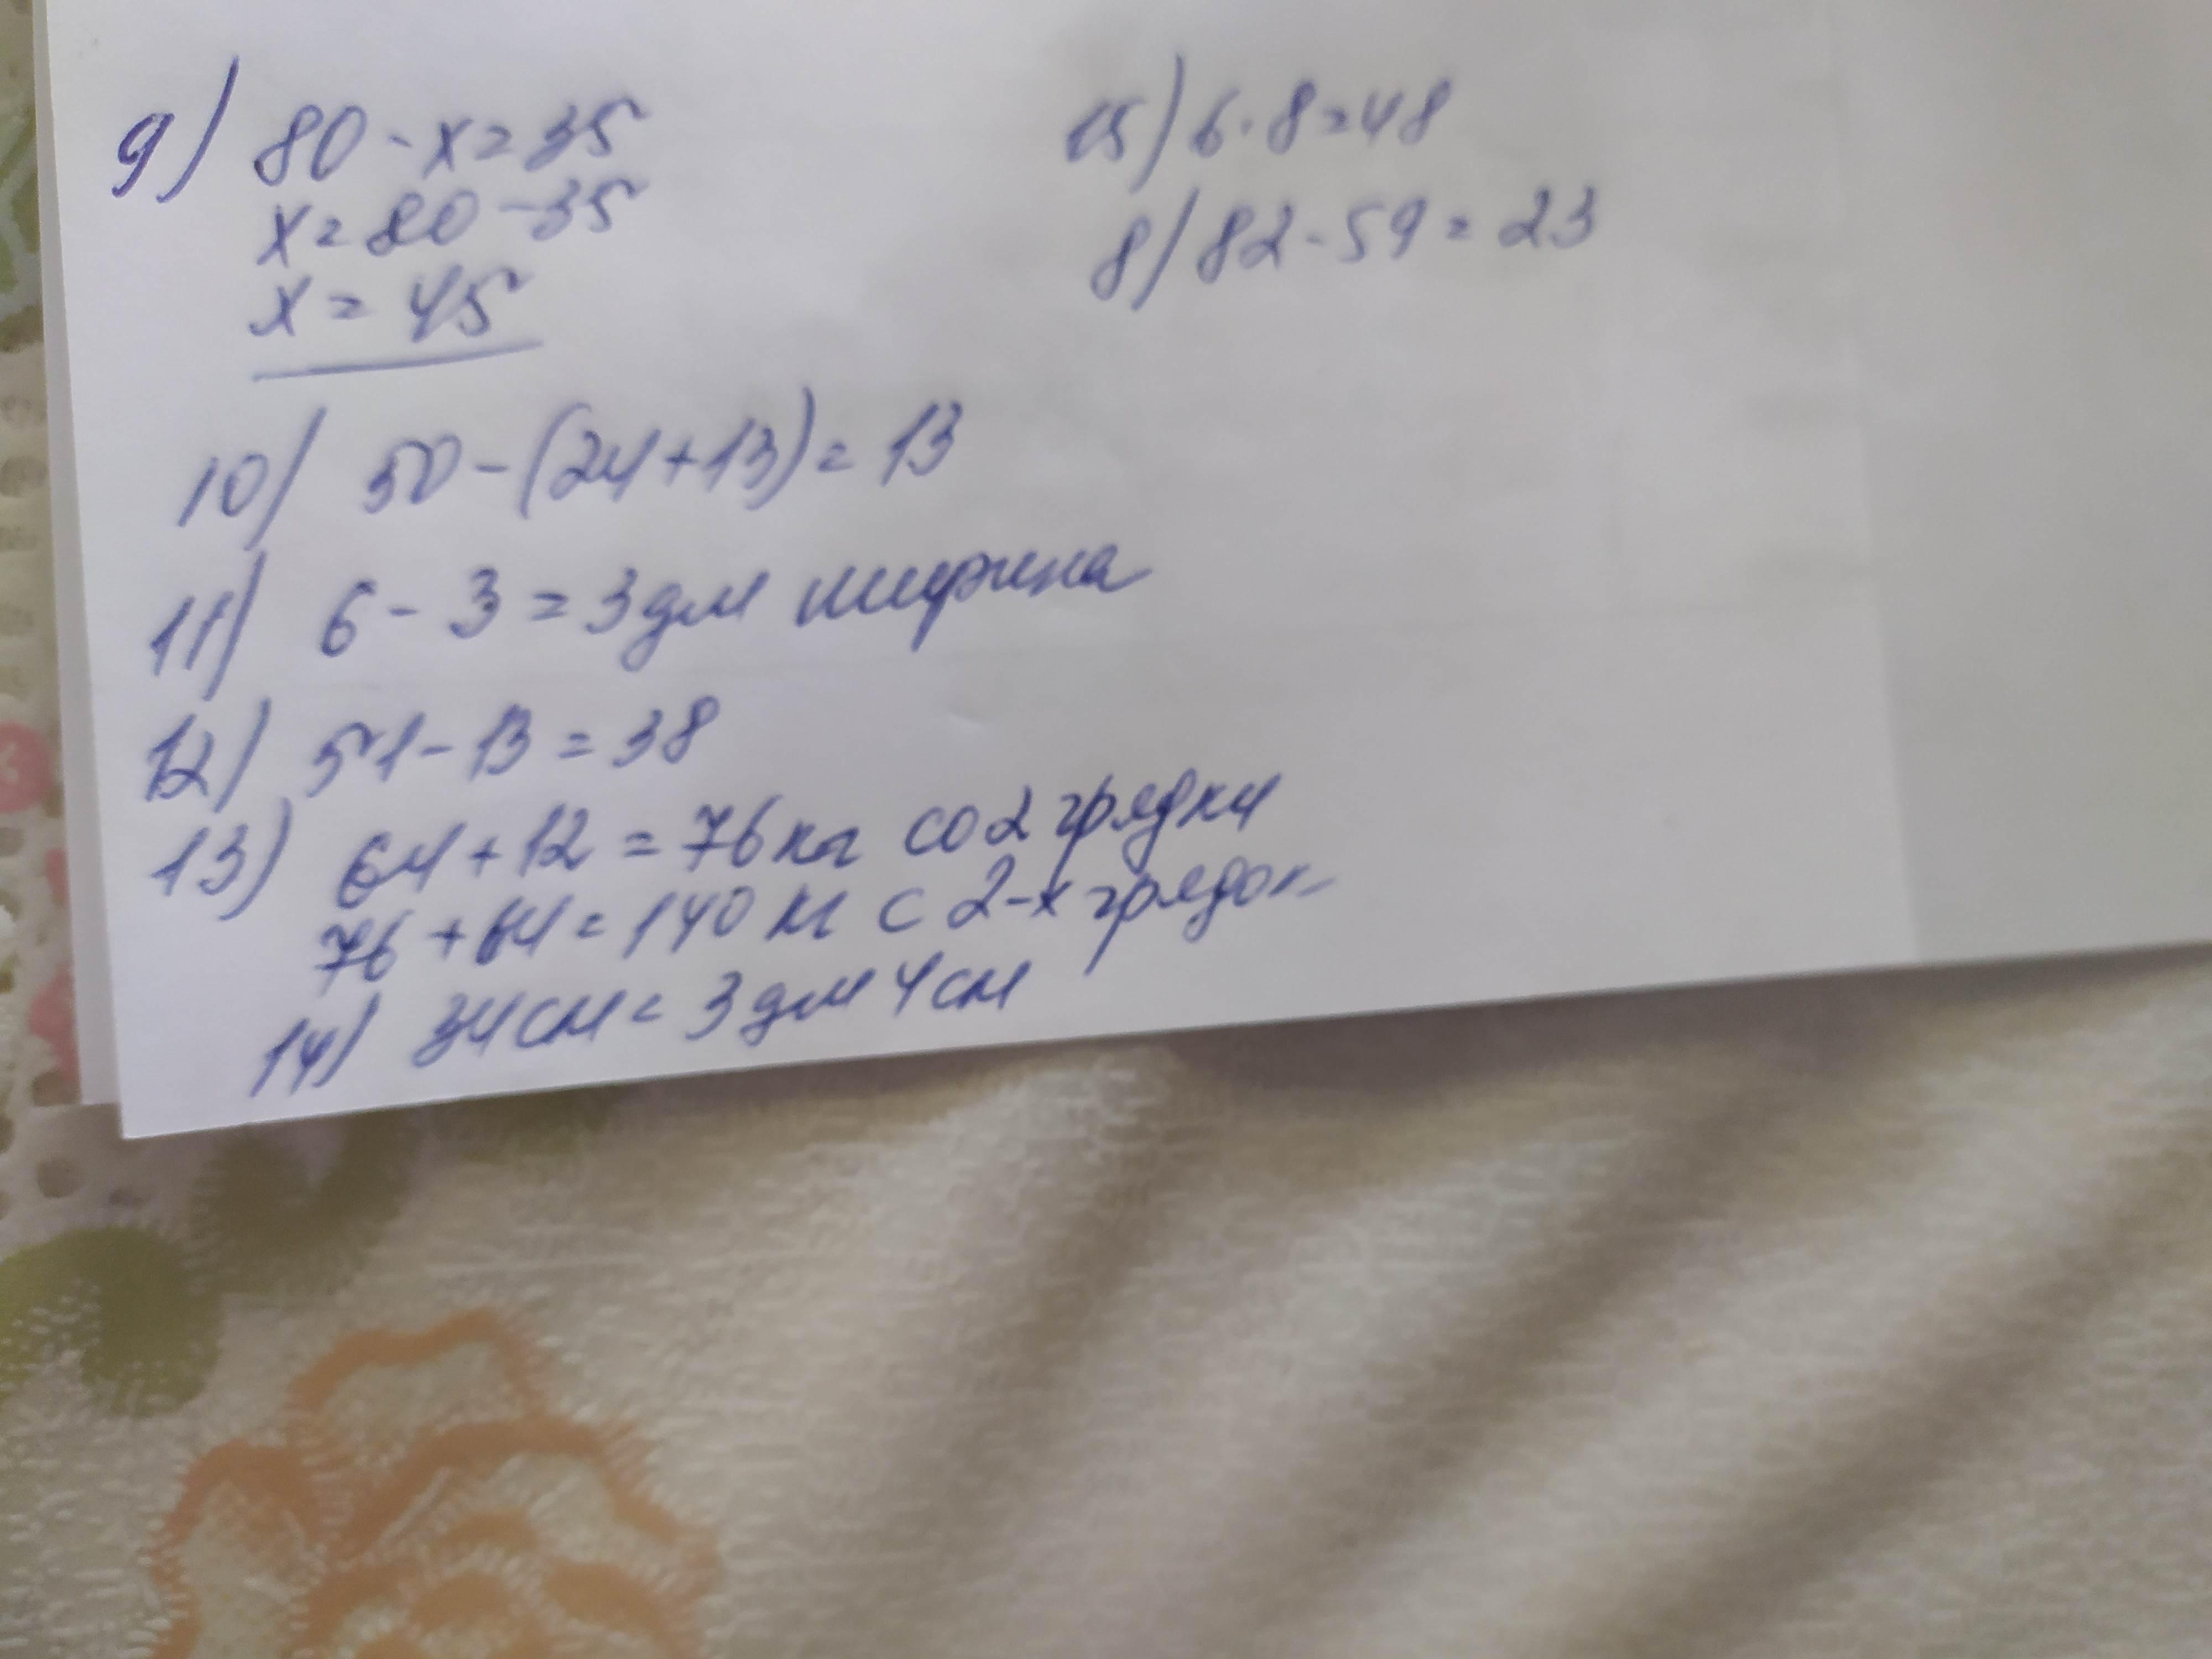 9) 80 - x = 35
x = 80 - 35
x = 45
10) 50 - (24 + 13) = 13
11) 6 - 3 = 3 дм ширина
12) 51 - 13 = 38
13) 64 + 12 = 76 кг со 2 грядки
76 + 64 = 140 кг с 2-х грядок
14) 34 см = 3 дм 4 см
15) 6 · 8 = 48
8) 82 - 59 = 23